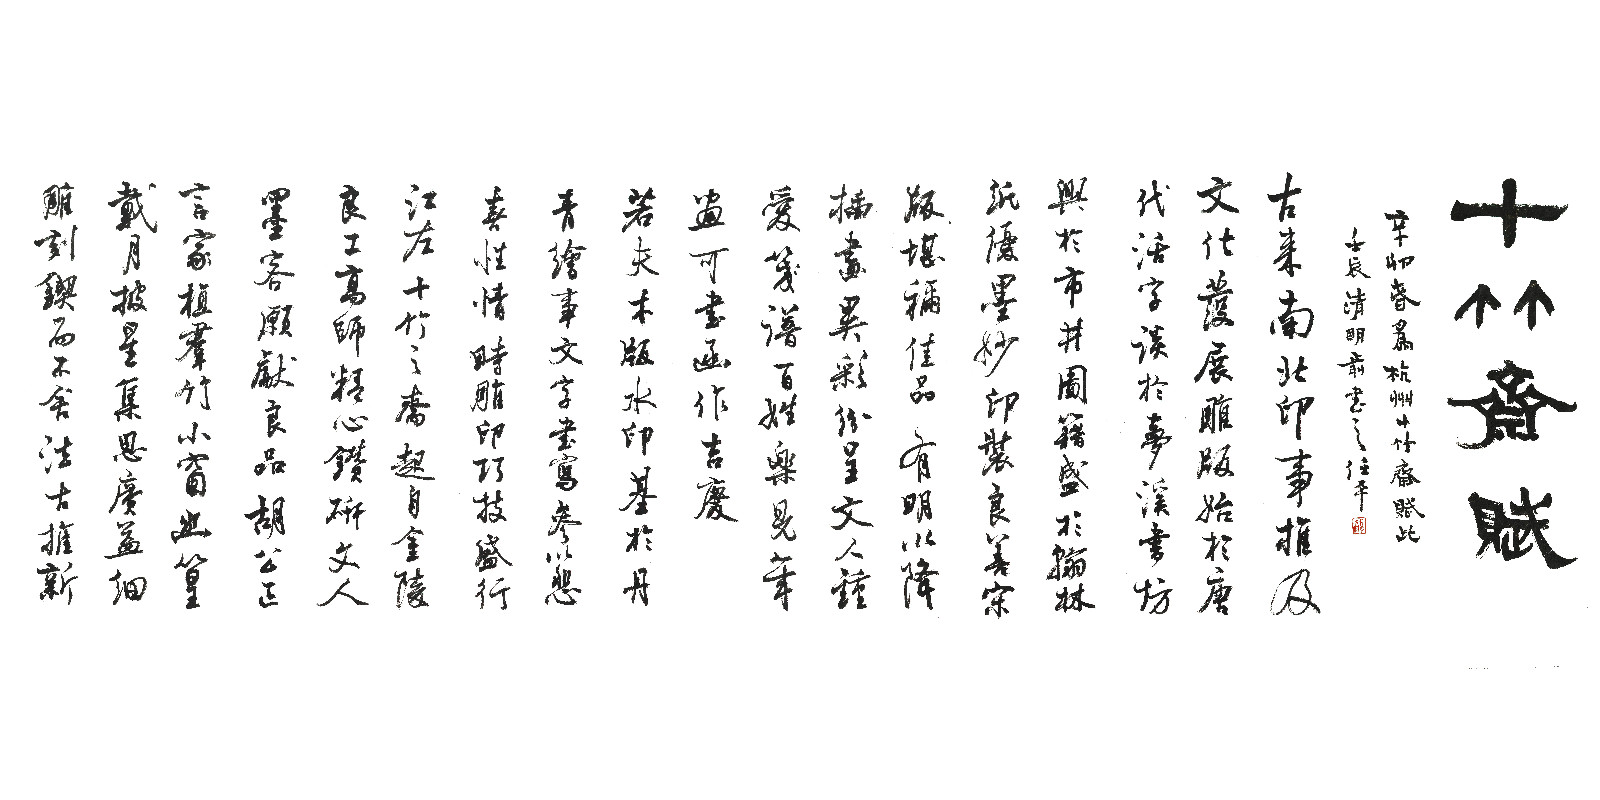 十竹斋賦
辛卯春爲杭州十竹齋賦此
壬辰清明前書之任平
古来南北印事推及
文化發展雕版始於唐
代活字談於夢溪書坊
興於市井圖籍盛於翰林
紙優墨妙印裝良善宋
版堪稱佳品有明以降
插畫異彩紛呈文人鍾
愛箋譜百姓樂見年
畫可書函作吉慶
若夫木版水印基於丹
青繪事文字書寫參以悲
喜性情時雕印巧技盛行
江左十竹之齋起自金陵
良工高師精心鑽研文人
墨客願獻良品胡公正
言家植羣竹小窗幽篁
戴月披星集思廣益細
雕刻鍥而不舍法古推新